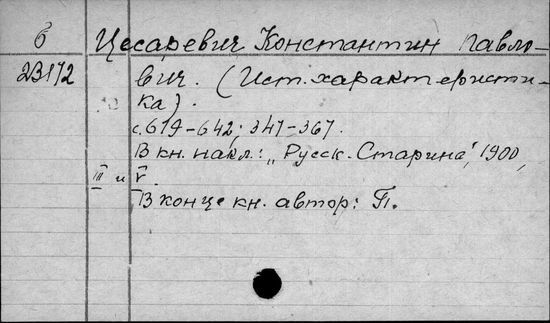 б Цесаревич Константин Павло-
23172 вич. (Ист. характеристи-
ка).
с. 619-642; 347-367.
В кн. накл: „Русск. Старина", 1900,
III и V.
В конце кн. автор: П.